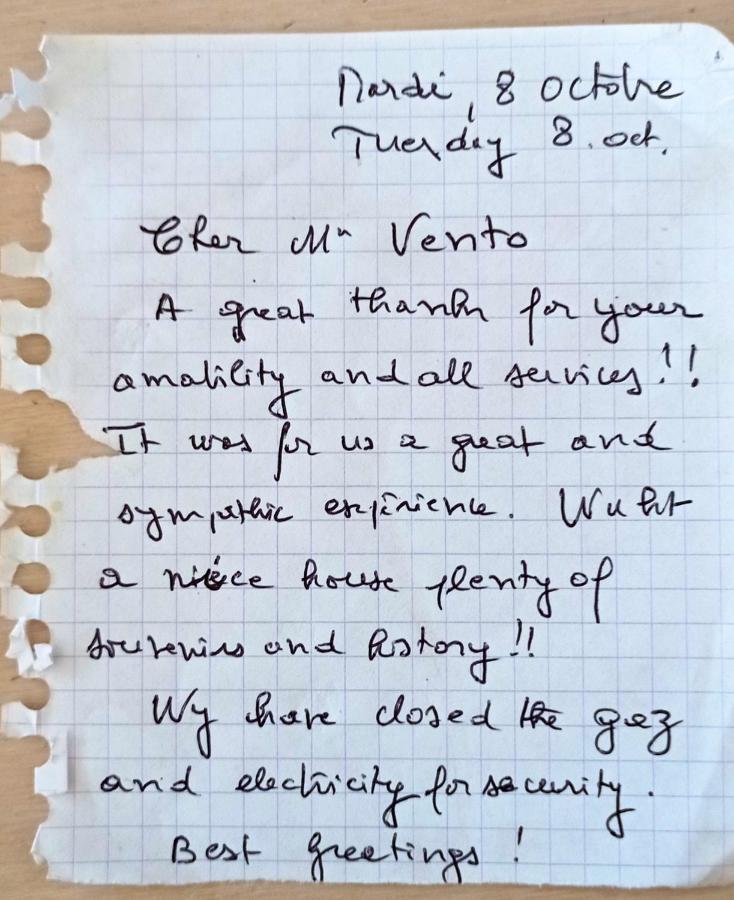 Mardi, 8 octobre
Tuesday 8. oct.
Cher Mr Vento
A great thanks for your
amability and all services!!
It was for us a great and
sympathic expérience. Wuht
a niece house plenty of
souvenirs and history!!
Wy have closed the gaz
and electricity for security.
Best greetings!